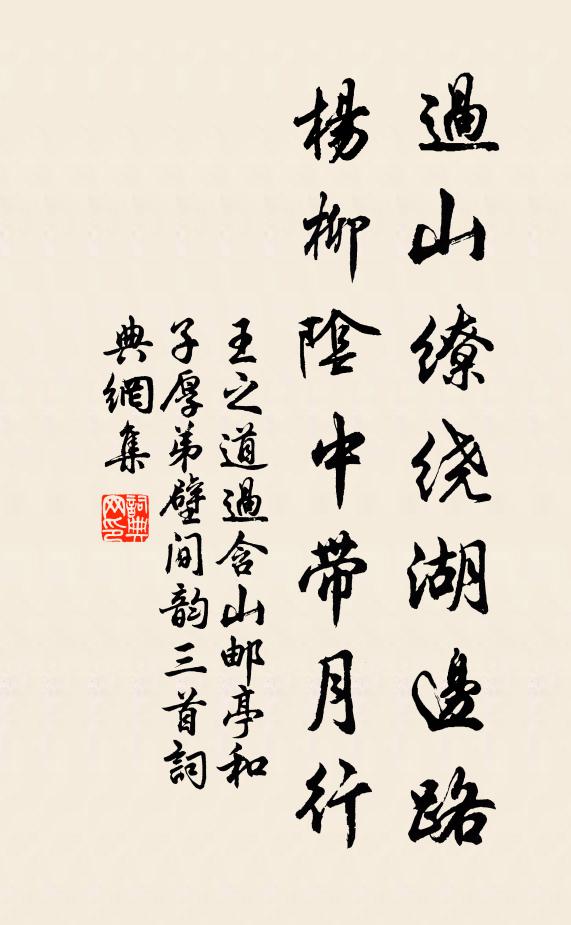 過山繚绕湖邊路
楊柳陰中帶月行
王之道過含山邮亭和
子厚弟壁间韵三首詞
典網集
詞典
网印